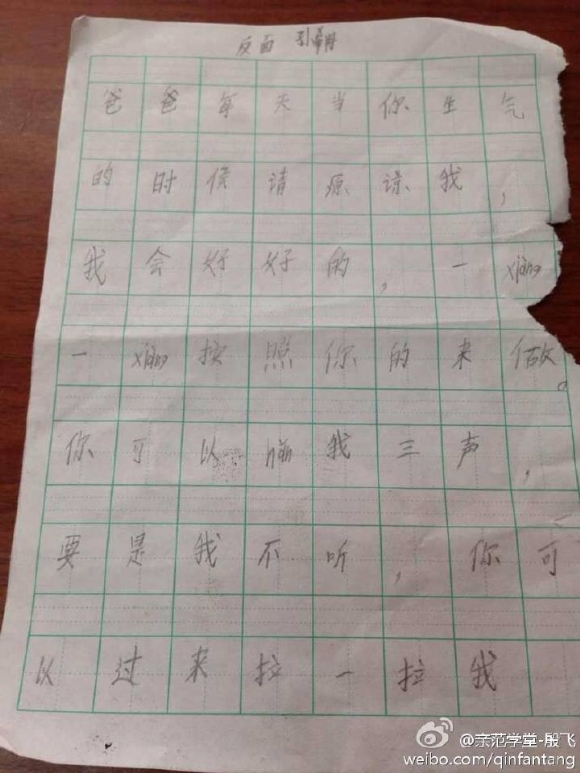 反面
爸爸每天当你生气
的时候请原谅我，
我会好好的，一xiàng
一xiàng按照你的来做。
你可以hǎn我三声，
要是我不听，你可
以过来拉一拉我
@亲范学堂-殷飞
weibo.com/qinfantang